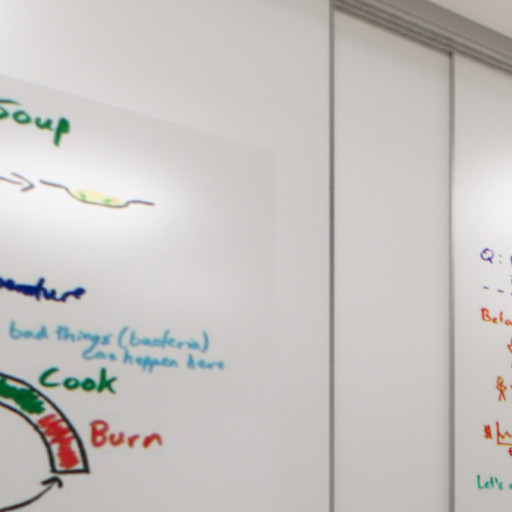 Soup
bad things (bacteria)
can happen here
Cook
Burn
Q:
Let's